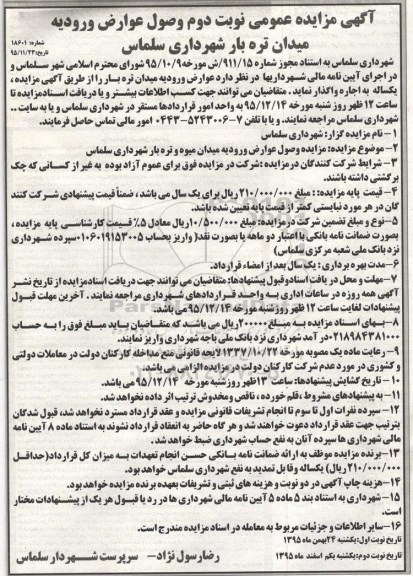 آگهی مزایده عمومی نوبت دوم وصول عوارض ورودیه
میدان تره بار شهرداری سلماس
شماره: ۱۸۶۰۱
تاریخ: ۹۵/۱۱/۲۳
شهرداری سلماس به استناد مجوز شماره ۹۱۱/۱۵/ش مورخه ۹۵/۱۰/۹ شورای محترم اسلامی شهر سلماس و
در اجرای آیین نامه مالی شهرداریها در نظر دارد عوارض ورودیه میدان تره بار را از طریق آگهی مزایده ،
یکساله به اجاره واگذار نماید . متقاضیان می توانند جهت کسب اطلاعات بیشتر و یا دریافت اسناد مزایده تا
ساعت ۱۲ ظهر روز شنبه مورخه ۹۵/۱۲/۱۴ به واحد امور قراردادها مستقر در شهرداری سلماس و یا به سایت ..
شهرداری سلماس مراجعه نمایند. و یا با تلفن ۷-۰۴۴۳۵۲۴۳۰۰۶ امور مالی تماس حاصل فرمایند.
۱- نام مزایده گزار: شهرداری سلماس
۲- موضوع مزایده: مزایده وصول عوارض ورودیه میدان میوه و تره بار شهرداری سلماس
۳- شرایط شرکت کنندگان در مزایده : شرکت در مزایده فوق برای عموم آزاد بوده به غیر از کسانی که چک
برگشتی داشته باشند.
۴- قیمت پایه مزایده: : مبلغ ۲۱۰/۰۰۰/۰۰۰ ریال برای یک سال می باشد ، ضمناً قیمت پیشنهادی شرکت کنند
گان در هر مورد نبایستی کمتر از قیمت پایه تعیین شده باشد.
۵- نوع و مبلغ تضمین شرکت در مزایده: مبلغ ۱۰/۵۰۰/۰۰۰ ریال معادل ۵% قیمت کارشناسی پایه مزایده ،
بصورت ضمانت نامه بانکی با اعتبار دو ماهه یا بصورت نقد( واریز بحساب ۰۱۰۶۰۱۹۱۵۳۰۰۵ سپرده شهرداری
نزد بانک ملی شعبه مرکزی سلماس)
۶- مدت بهره برداری : یک سال بعد از امضاء قرارداد.
۷- مهلت و محل دریافت اسناد و قبول پیشنهادها: متقاضیان می توانند جهت دریافت اسناد مزایده از تاریخ نشر
آگهی همه روزه در ساعات اداری به واحد قراردادهای شهرداری مراجعه نمایند . آخرین مهلت قبول
پیشنهادات لغایت ساعت ۱۲ ظهر روز شنبه مورخه ۹۵/۱۲/۱۴ می باشد.
۸- بهای اسناد مزایده به مبلغ ۲۰۰۰۰۰ ریال می باشد که متقاضیان باید مبلغ فوق را به حساب
۰۲۱۸۹۸۴۳۸۱۰۰۰ در آمد شهرداری نزد بانک ملی باجه شهرداری واریز نمایند.
۹- رعایت ماده یک مصوبه مورخه ۱۳۳۷/۱۰/۲۲ لایحه قانونی منع مداخله کارکنان دولت در معاملات دولتی
و کشوری در مورد عدم شرکت کارکنان دولت در مزایده الزامی می باشد.
۱۰- تاریخ گشایش پیشنهادها: ساعت ۱۳ ظهر روز شنبه مورخه ۹۵/۱۲/۱۴ می باشد.
۱۱- به پیشنهادهای مشروط ، قلم خورده ، ناقص و مخدوش ترتیب اثر داده نخواهد شد.
۱۲- سپرده نفرات اول تا سوم تا انجام تشریفات قانونی مزایده و عقد قرارداد مسترد نخواهد شد، قبول شدگان
بترتیب جهت عقد قرارداد دعوت خواهند شد و هر گاه حاضر به انعقاد قرارداد نشوند به استناد ماده ۸ آیین نامه
مالی شهرداری ها سپرده آنان به نفع حساب شهرداری ضبط خواهد شد.
۱۳- برنده مزایده موظف به ارائه ضمانت نامه بانکی حسن انجام تعهدات به میزان کل قرارداد(حداقل
۲۱۰/۰۰۰/۰۰۰ ریال) یکساله و قابل تمدید به نفع شهرداری سلماس خواهد بود.
۱۴- هزینه چاپ آگهی در دو نوبت و هزینه های ثبتی و تشریفات بعهده برنده مزایده خواهد بود.
۱۵- شهرداری به استناد بند ۵ ماده ۵ آیین نامه مالی شهرداری ها در رد یا قبول هر یک از پیشنهادات مختار
است.
۱۶- سایر اطلاعات و جزئیات مربوط به معامله در اسناد مزایده مندرج است.
تاریخ نوبت اول: یکشنبه ۲۴ بهمن ماه ۱۳۹۵
تاریخ نوبت دوم: یکشنبه یکم اسفند ماه ۱۳۹۵
رضا رسول نژاد- سرپرست شهردار سلماس